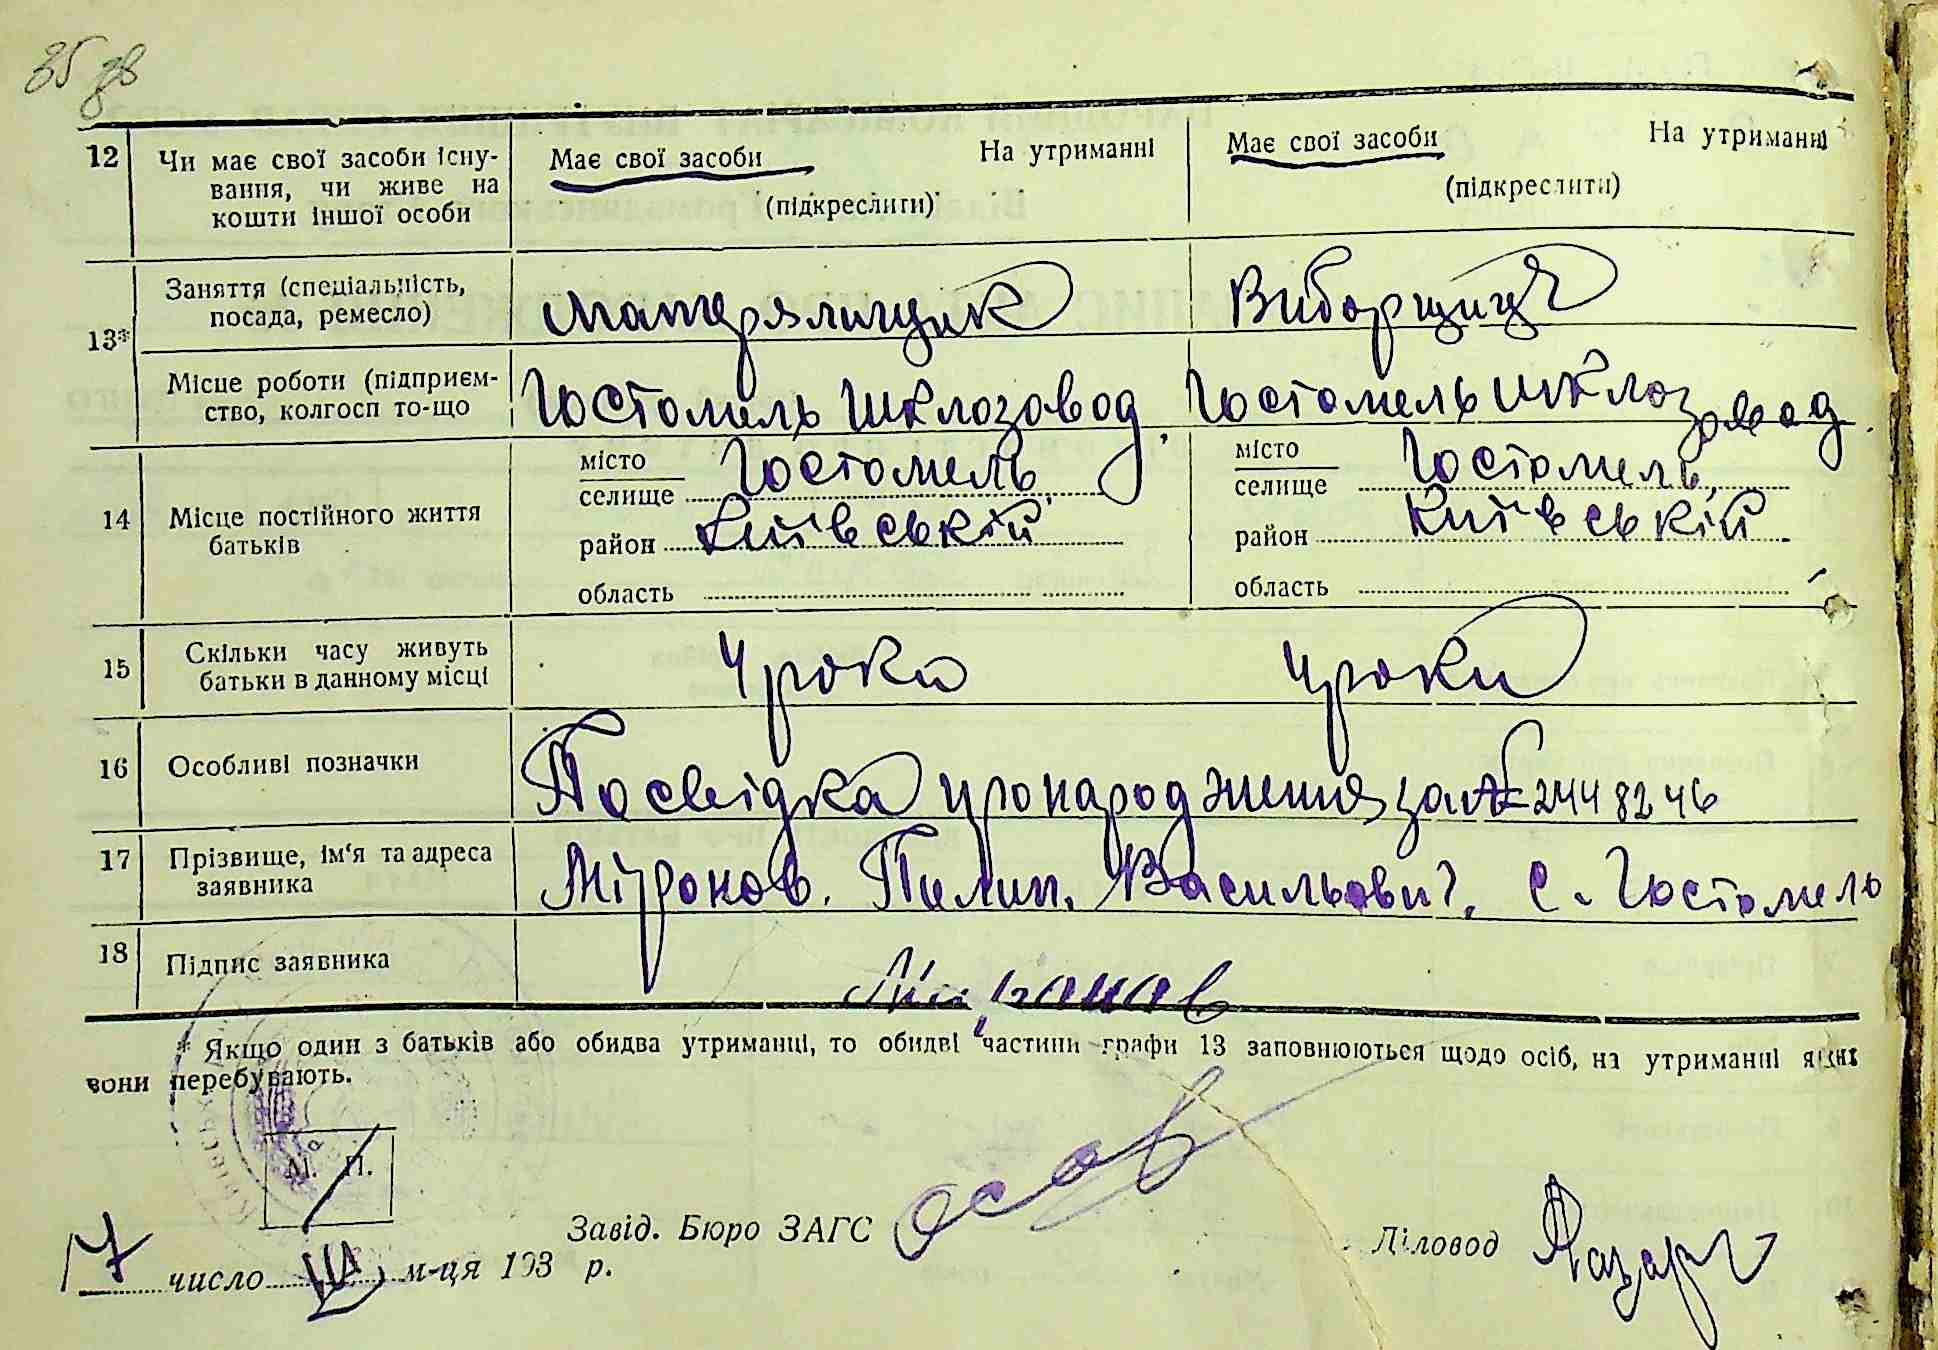 85 зв
12 Чи має свої засоби існу- Має свої засоби На утриманні Має свої засоби На утриманні
вання, чи живе на (підкреслити) (підкреслити)
кошти іншої особи
13* Заняття (спеціальність, Матерялищик Виборщиця
посада, ремесло)
Місце роботи (підприєм- Гостомель шклозовод, Гостомель шклозовод.
ство, колгосп то-що
14 Місце постійного життя місто Гостомель, місто Гостомель,
батьків селище селище
район Київській район Київській
область область
15 Скільки часу живуть 4 роки 4 роки
батьки в данному місці
16 Особливі позначки Посвідка про народження за № 2448246
17 Прізвище, ім'я та адреса Міронов. Пилип. Васильович. с. Гостомель
заявника
18 Підпис заявника Миронов
* Якщо один з батьків або обидва утриманці, то обидві частини графи 13 заповнюються щодо осіб, на утриманні яких
вони перебувають.
М. П.
Завід. Бюро ЗАГС Діловод
17 число III м-ця 193 р.